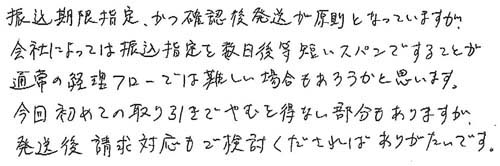 振込期限指定、かつ確認後発送が原則となっていますが、
会社によっては振込指定を数日後等短いスパンですることが
通常の経理フローでは難しい場合もあろうかと思います。
今回初めての取り引きでやむを得ない部分もありますが、
発送後請求対応もご検討くださればありがたいです。